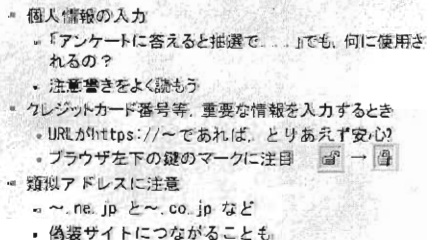 個人情報の入力
「アンケートに答えると抽選で...」でも、何に使用さ
れるの？
注意書きをよく読もう
クレジットカード番号等、重要な情報を入力するとき
URLがhttps://～であれば、とりあえず安心?
ブラウザ左下の鍵のマークに注目 →
類似アドレスに注意
～.ne.jp と～.co.jp など
偽装サイトにつながることも